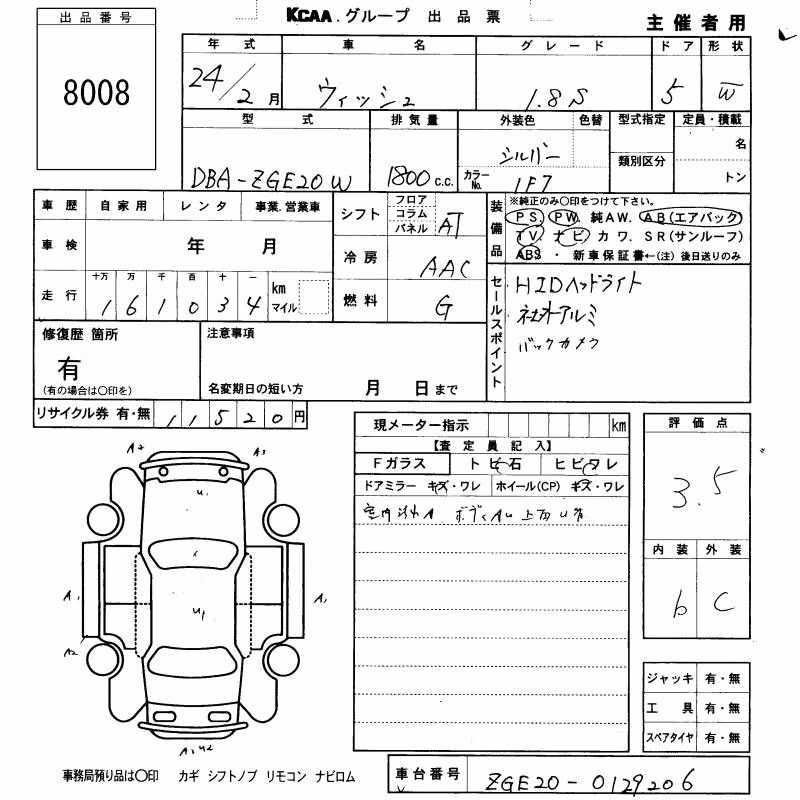 KCAA.グループ 出品票
主催者用
出品番号
8008
年式 車名 グレード ドア 形状
24/2月 ウィッシュ 1.8S 5 W
型式 排気量 外装色 色替 型式指定 定員・積載
シルバー 名
類別区分
DBA-ZGE20W 1800c.c. カラーNo. 1F7 トン
車歴 自家用 レンタ 事業.営業車
シフト フロア コラム パネル AT
装備品 ※純正のみ○印をつけて下さい。
PS. PW. 純AW. AB(エアバック)
TV. ナビ カワ. SR(サンルーフ)
ABS ・ 新車保証書←(注) 後日送りのみ
車検 年 月
冷房 AAC
走行 十万 万 千 百 十 一
1 6 1 0 3 4 km マイル
燃料 G
セールスポイント
HIDヘッドライト
社外アルミ
バックカメラ
修復歴 箇所
有
(有の場合は○印を)
注意事項
名変期日の短い方 月 日まで
リサイクル券 有・無 11520円
現メーター指示 km
【査定員記入】
Fガラス トビ石 ヒビワレ
ドアミラー キズ・ワレ ホイール(CP) キズ・ワレ
評価点
3.5
内装 外装
b C
A2 A1
U1
U1
A1 A1
A2
A1 U2
ジャッキ 有・無
工具 有・無
スペアタイヤ 有・無
事務局預り品は○印 カギ シフトノブ リモコン ナビロム
車台番号 ZGE20-0129206